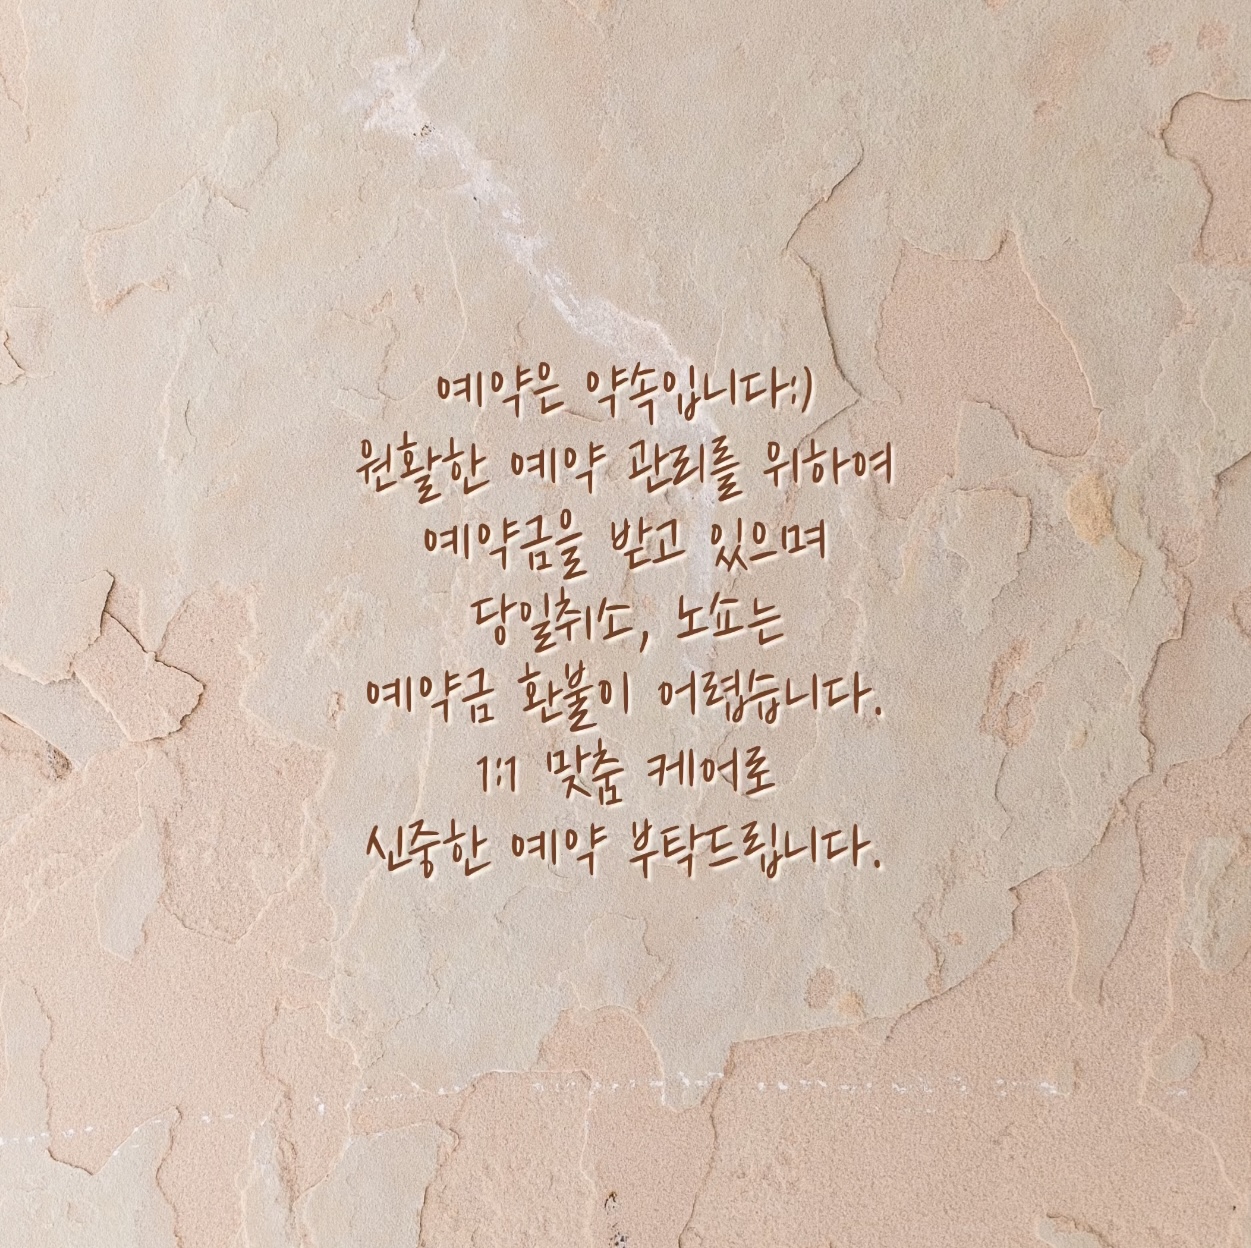 예약은 약속입니다:)
원활한 예약 관리를 위하여
예약금을 받고 있으며
당일취소, 노쇼는
예약금 환불이 어렵습니다.
1:1 맞춤 케어로
신중한 예약 부탁드립니다.